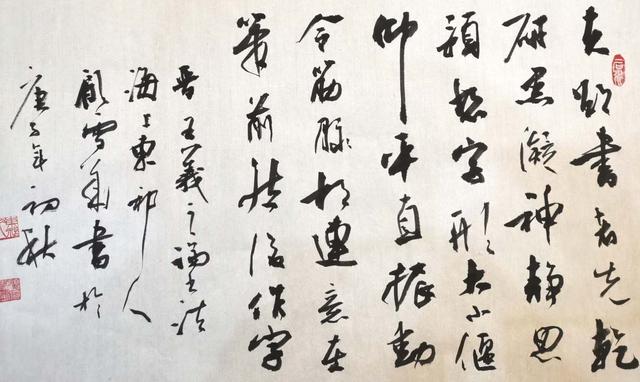 夫欲書者先乾
研墨凝神静思
預想字形大小偃
仰平直振動
令筋脉相連意在
筆前然後作字
晋王羲之論書法
海上東人
顧雪書於
庚子年初秋